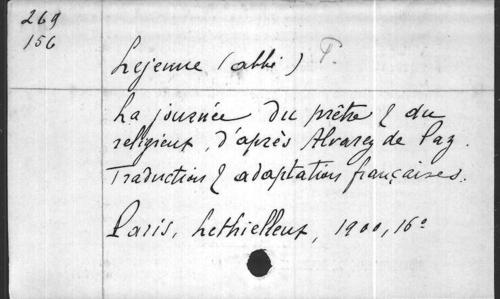 269
156
Lejeune (abbé) P.
La journée du prêtre & du
religieux, d'après Alvarez de Paz.
Traduction & adaptation françaises.
Paris, Lethielleux, 1900, 16°